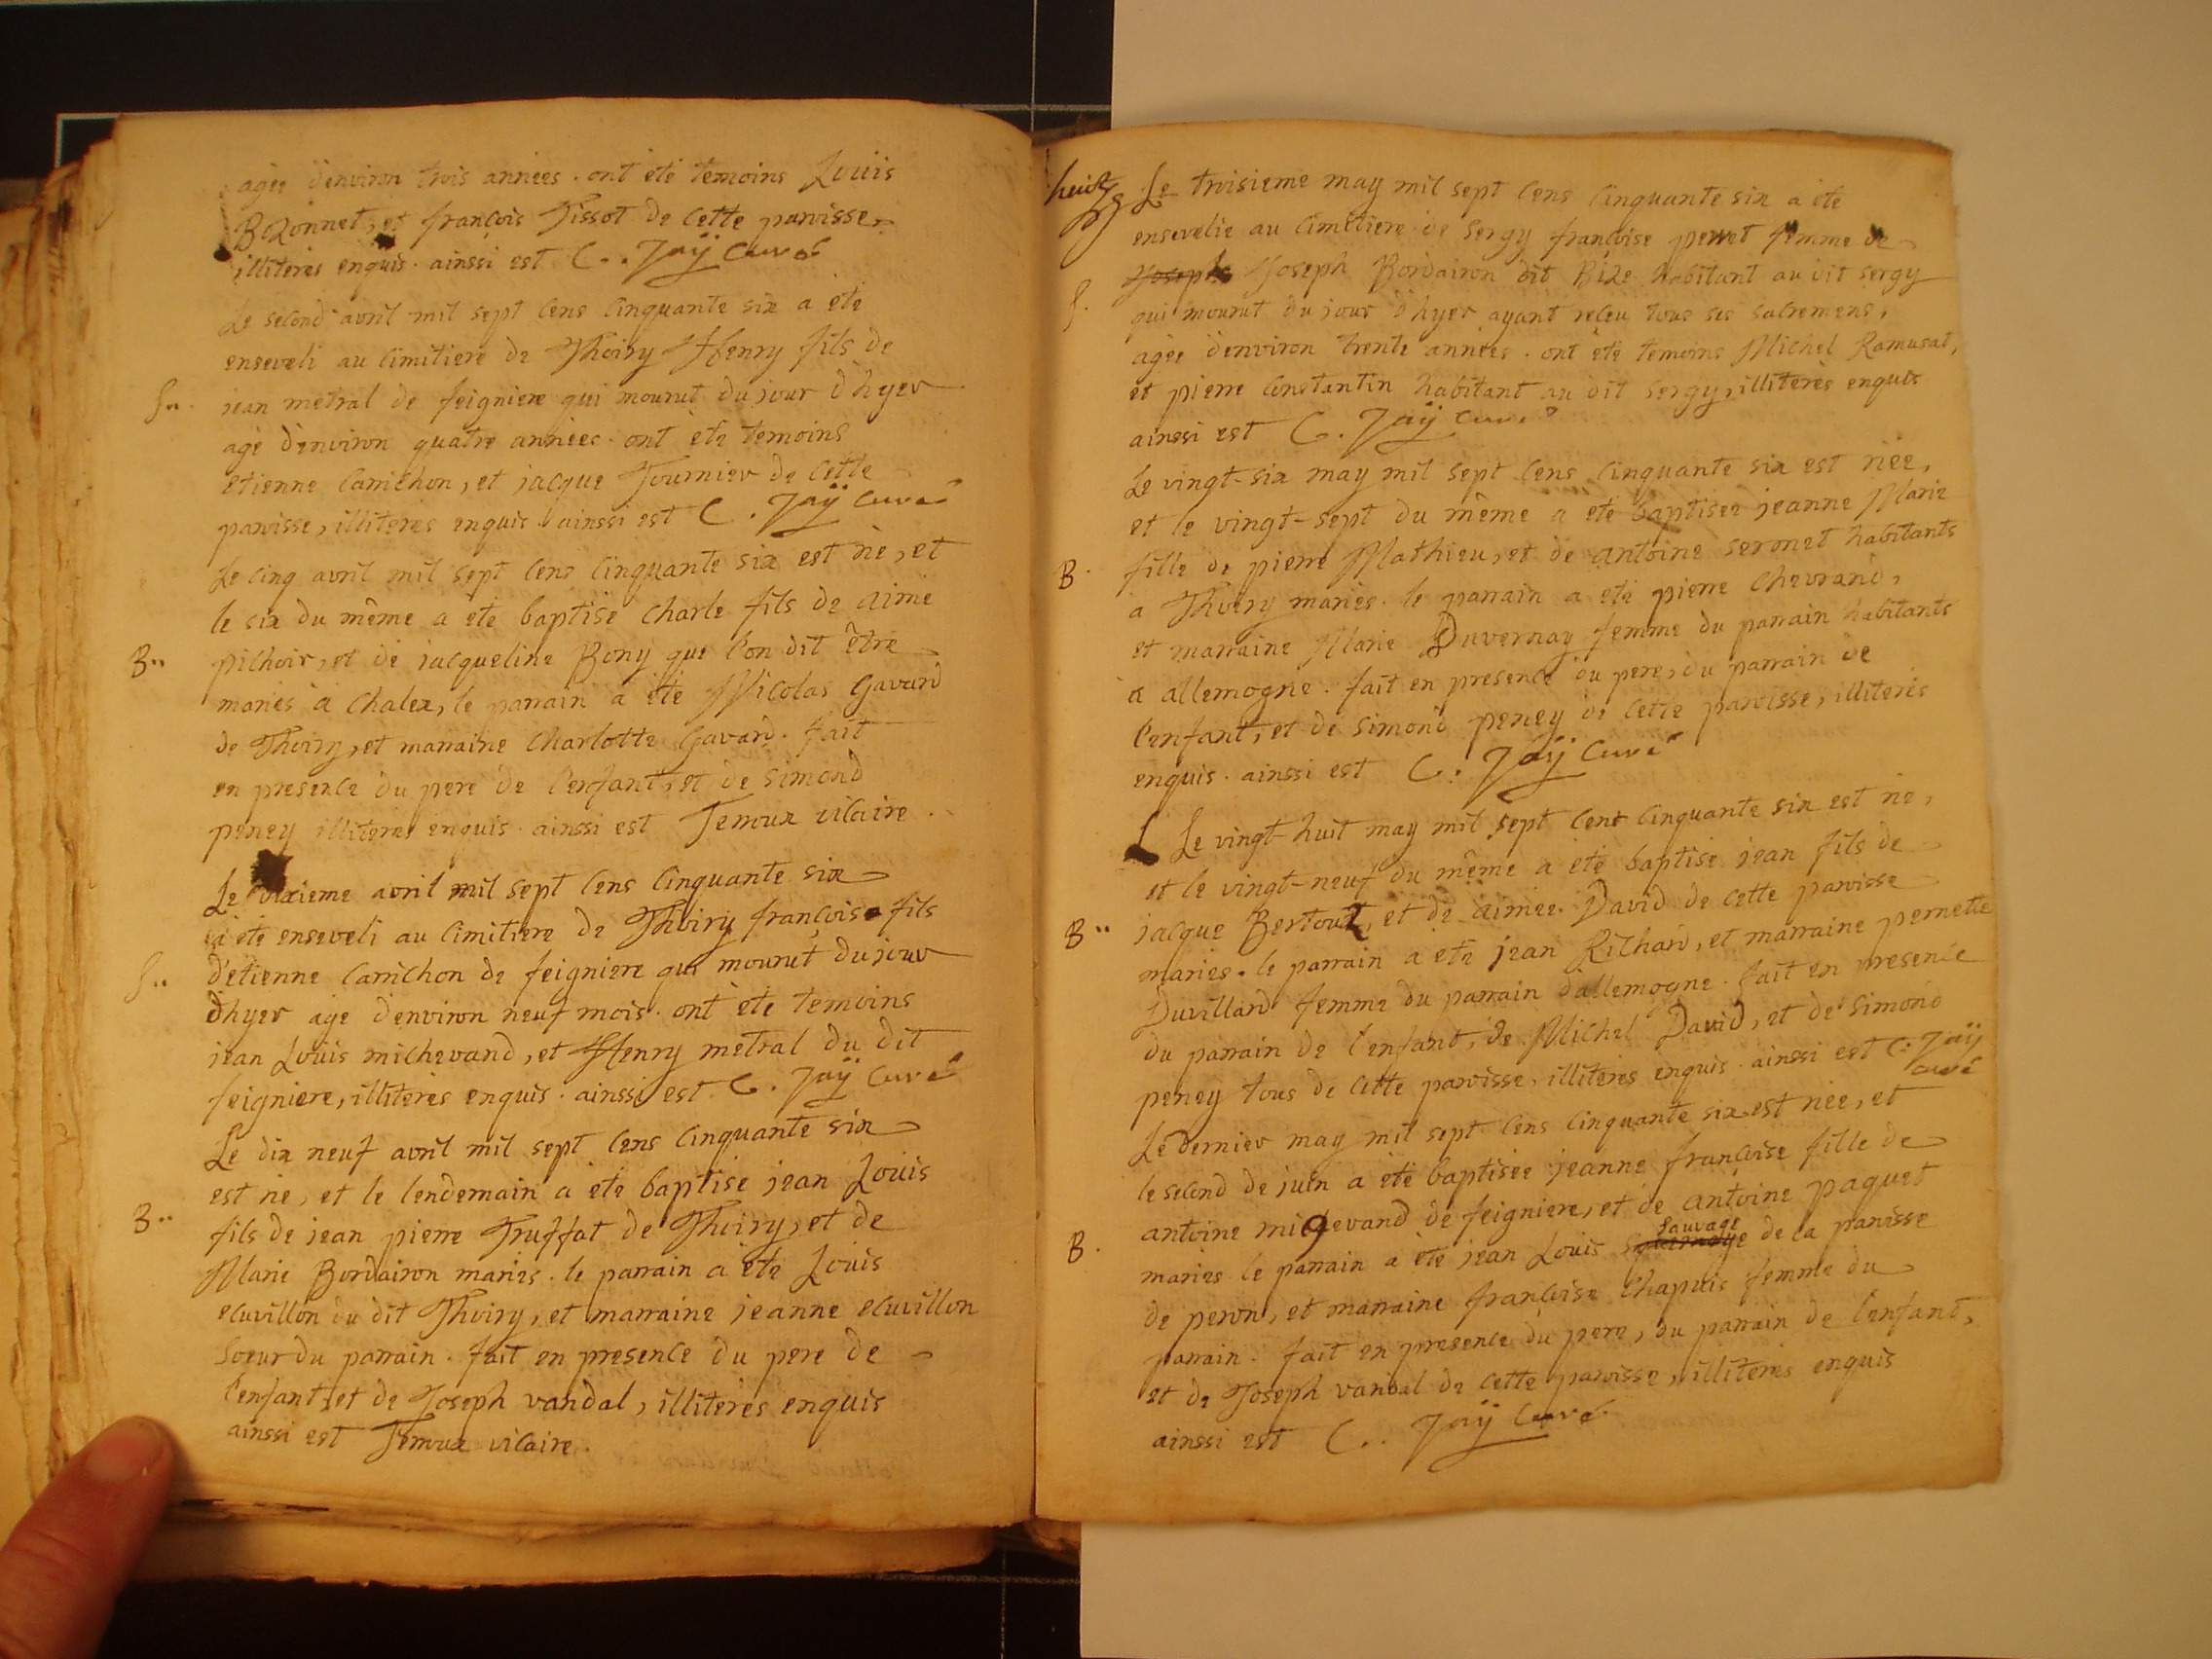 agée d'environ trois années. ont été temoins Louis
Bozonnet, et françois Tissot de cette paroisse
illiterès enquis. ainssi est C. Jaÿ Curé
Le second avril mil sept cens cinquante six a été
enseveli au cimitiere de Thoiry Henry fils de
S.. jean metral de feigniere qui mourut du jour d'hyer
agé d'environ quatre années. ont été temoins
etienne Canichon, et jacque Tournier de cette
paroisse, illiterès enquis ainssi est C. Jaÿ Curé
Le cinq avril mil sept cens cinquante six est né, et
le six du même a été baptisé charle fils de aimé
B.. pichoir, et de jacqueline Bony que l'on dit être
mariés à chalex, le parrain a été Nicolas Gavard
de Thoiry, et marraine charlotte Gavard. fait
en presence du pere de l'enfant, et de simond
peney illiterès enquis. ainssi est Temoux vicaire.
Le avril mil sept cens cinquante six
a été enseveli au cimitiere de Thoiry françois fils
S.. d'etienne Canichon de feigniere qui mourut du jour
d'hyer agé d'environ neuf mois. ont été temoins
jean Loüis michevand, et Henry metral du dit
feigniere, illiterès enquis. ainssi est C. Jaÿ Curé
Le dix neuf avril mil sept cens cinquante six
est né, et le lendemain a été baptisé jean Loüis
B.. fils de jean pierre Truffat de Thoiry, et de
Marie Bordairon mariés. le parrain a été Loüis
ecuvillon du dit Thoiry, et marraine jeanne ecuvillon
soeur du parrain. fait en presence du pere de
l'enfant, et de Joseph vandal, illiterès enquis
ainssi est Temoux vicaire.
Le troisieme may mil sept cens cinquante six a été
ensevelie au cimitiere de Sergy françoise perret femme de
Joseph Joseph Bordairon dit Bize habitant au dit sergy
S. qui mourut du jour d'hyer ayant reçeu tous ses sacremens,
agée d'environ trente années. ont été temoins Michel Ramusat,
et pierre Constantin habitant au dit sergy, illiterès enquis
ainssi est C. Jaÿ Curé
Le vingt-six may mil sept cens cinquante six est née,
et le vingt-sept du même a été baptisée jeanne Marie
B. fille de pierre Mathieu, et de antoine sermet habitants
à Thoiry mariés. le parrain a été pierre chevrand,
et marraine Marie Duvernay femme du parrain habitants
à allemogne. fait en presence du pere, du parrain de
l'enfant, et de simond peney de cette paroisse, illiterès
enquis. ainssi est C. Jaÿ Curé
Le vingt-huit may mil sept cens cinquante six est né,
et le vingt-neuf du même a été baptisé jean fils de
B.. jacque Bertout, et de aimée David de cette paroisse
mariés. le parrain a été jean Richard, et marraine pernette
Duvillard femme du parrain d'allemogne. fait en presence
du parrain de l'enfant, de Michel David, et de simond
peney tous de cette paroisse, illiterès enquis. ainssi est C. Jaÿ
curé
Le dernier may mil sept cens cinquante six est née, et
le second de juin a été baptisée jeanne françoise fille de
antoine michevand de feigniere, et de antoine paquet
sauvage
B. mariés le parrain a été jean Louis de la paroisse
de peron, et marraine françoise Chapuis femme du
parrain. fait en presence du pere, du parrain de l'enfant,
et de Joseph vandal de cette paroisse, illiterès enquis
ainssi est C. Jaÿ Curé